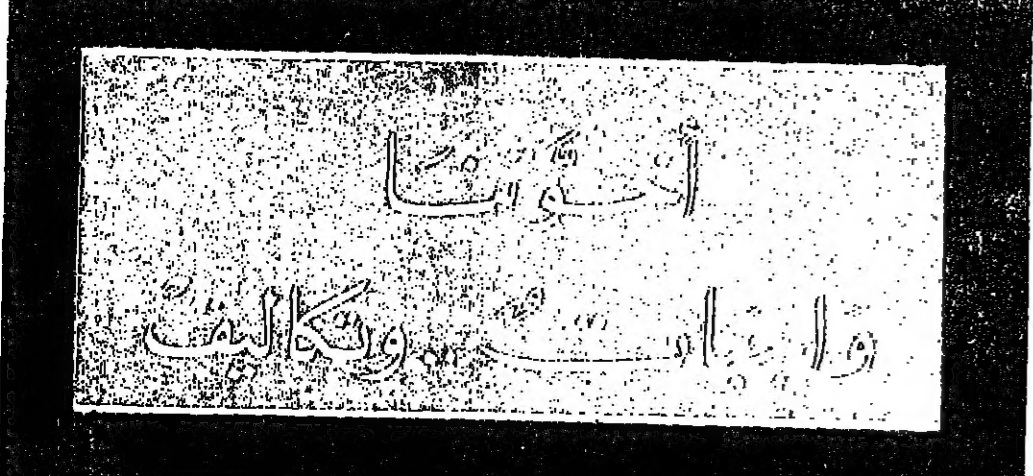 أخوتنا
واجبات وتكاليف